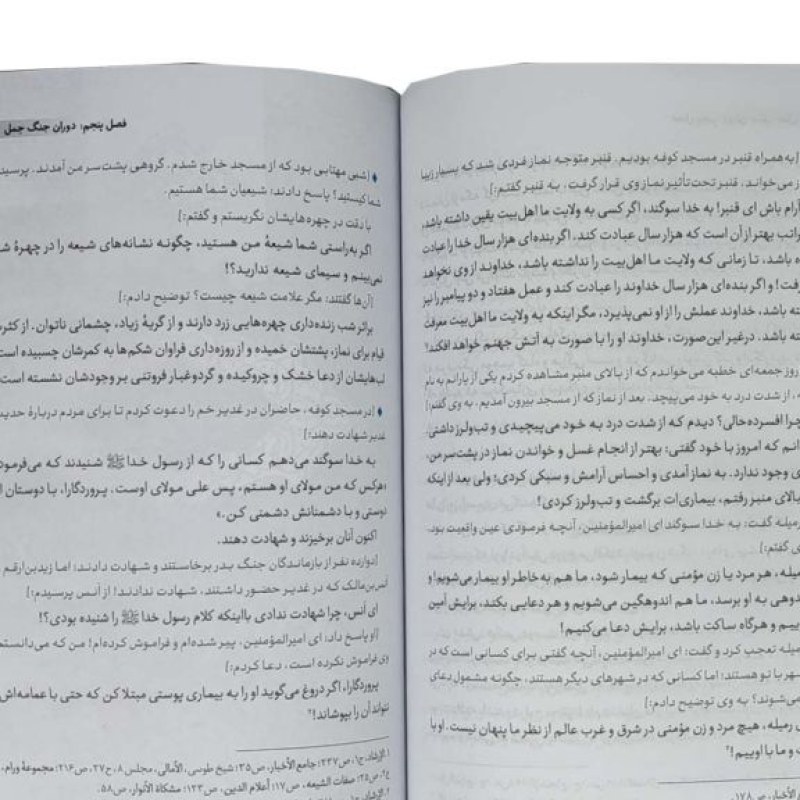 [به همراه قنبر در مسجد کوفه بودیم. قنبر متوجه نماز فردی شد که بسیار زیبا
می‌خواند. قنبر تحت‌تأثیر نماز وی قرار گرفت. به قنبر گفتم:]
آرام باش ای قنبر! به خدا سوگند، اگر کسی به ولایت ما اهل‌بیت یقین داشته باشد،
بهتر از آن است که هزار سال عبادت کند. اگر بنده‌ای هزار سال خدا را عبادت
باشد، تا زمانی که ولایت ما اهل‌بیت را نداشته باشد، خداوند از وی نخواهد
و اگر بنده‌ای هزار سال خداوند را عبادت کند و عمل هفتاد و دو پیامبر را نیز
باشد، خداوند عملش را از او نمی‌پذیرد، مگر اینکه به ولایت ما اهل‌بیت معرفت
باشد. درغیر این‌صورت، خداوند او را با صورت به آتش جهنم خواهد افکند!
روز جمعه‌ای خطبه می‌خواندم که از بالای منبر مشاهده کردم یکی از یارانم به نام
، از شدت درد به خود می‌پیچد. بعد از نماز که از مسجد بیرون آمدیم، به وی گفتم:]
چرا افسرده‌حالی؟ دیدم که از شدت درد به خود می‌پیچیدی و تب‌ولرز داشتی.
که امروز با خود گفتی: بهتر از انجام غسل و خواندن نماز در پشت‌سر من،
وجود ندارد. به نماز آمدی و احساس آرامش و سبکی کردی؛ ولی بعد از اینکه
بالای منبر رفتم، بیماری‌ات برگشت و تب‌ولرز کردی!
رمیله گفت: به خدا سوگند ای امیرالمؤمنین، آنچه فرمودی عین واقعیت بود.
گفتم:]
هر مرد یا زن مؤمنی که بیمار شود، ما هم به خاطر او بیمار می‌شویم! و
به او برسد، ما هم اندوهگین می‌شویم و هر دعایی بکند، برایش آمین
و هرگاه ساکت باشد، برایش دعا می‌کنیم!
رمیله تعجب کرد و گفت: ای امیرالمؤمنین، آنچه گفتی برای کسانی است که در
با تو هستند؛ اما کسانی که در شهرهای دیگر هستند، چگونه مشمول دعای
می‌شوند؟ به وی توضیح دادم:]
رمیله، هیچ مرد و زن مؤمنی در شرق و غرب عالم از نظر ما پنهان نیست. او با
و ما با اوییم!
الأخبار، ص۱۷۸.
فصل پنجم: دوران جنگ جمل
[شبی مهتابی بود که از مسجد خارج شدم. گروهی پشت‌سر من آمدند. پرسیدم:
شما کیستید؟ پاسخ دادند: شیعیان شما هستیم.
با دقت در چهره‌هایشان نگریستم و گفتم:]
اگر به‌راستی شما شیعهٔ من هستید، چگونه نشانه‌های شیعه را در چهرهٔ
نمی‌بینم و سیمای شیعه ندارید؟!
[آن‌ها گفتند: مگر علامت شیعه چیست؟ توضیح دادم:]
براثر شب زنده‌داری چهره‌هایی زرد دارند و از گریهٔ زیاد، چشمانی ناتوان. از
قیام برای نماز، پشتشان خمیده و از روزه‌داری فراوان شکم‌ها به کمرشان چسبیده است.
لب‌هایشان از دعا خشک و چروکیده و گردوغبار فروتنی بر وجودشان نشسته است.
[در مسجد کوفه، حاضران در غدیر خم را دعوت کردم تا برای مردم دربارهٔ
غدیر شهادت دهند:]
به خدا سوگند می‌دهم کسانی را که از رسول خداﷺ شنیدند که
«هرکس که من مولای او هستم، پس علی مولای اوست. پروردگارا، با دوستان
دوستی و با دشمنانش دشمنی کن.»
اکنون آنان برخیزند و شهادت دهند.
[دوازده نفر از بازماندگان جنگ بدر برخاستند و شهادت دادند؛ اما زیدبن‌ارقم
أنس‌بن‌مالک که در غدیر حضور داشتند، شهادت ندادند! از أنس پرسیدم:]
ای أنس، چرا شهادت ندادی بااینکه کلام رسول خداﷺ را شنیده بودی؟!
[او پاسخ داد: ای امیرالمؤمنین، پیر شده‌ام و فراموش کرده‌ام! من که می‌دانستم
وی فراموش نکرده است، دعا کردم:]
پروردگارا، اگر دروغ می‌گوید او را به بیماری پوستی مبتلا کن که حتی با عمامه‌اش
نتواند آن را بپوشاند!
۱. الإرشاد، ج۱، ص۲۳۷؛ جامع الأخبار، ص۳۵؛ شیخ طوسی، الأمالی، مجلس ۸، ح۲۷، ص۲۱۶؛ مجموعهٔ ورام،
ص۲۵؛ صفات الشیعه، ص۱۷؛ أعلام الدین، ص۱۲۳؛ مشکاة الأنوار، ص۵۸.